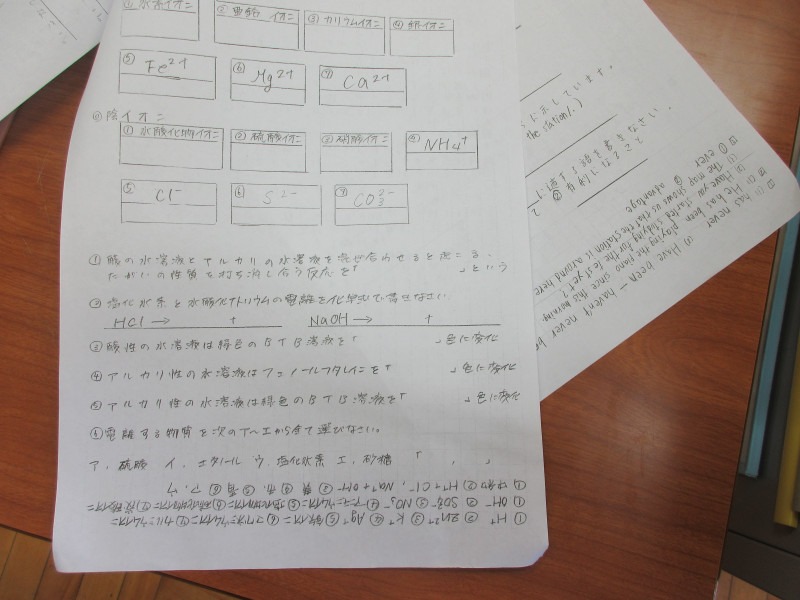 ①水素イオン ②亜鉛イオン ③カリウムイオン ④銀イオン
⑤ Fe2+ ⑥ Mg2+ ⑦ Ca2+
陰イオン
①水酸化物イオン ②硫酸イオン ③硝酸イオン ④ NH4+
⑤ Cl- ⑥ S2- ⑦ CO3 2-
①酸の水溶液とアルカリの水溶液を混ぜ合わせると起こる、
たがいの性質を打ち消し合う反応を「 」という
②塩化水素と水酸化ナトリウムの電離を化学式で書きなさい
HCl → + NaOH → +
③酸性の水溶液は緑色のBTB溶液を「 」色に変化
④アルカリ性の水溶液はフェノールフタレインを「 」色に変化
⑤アルカリ性の水溶液は緑色のBTB溶液を「 」色に変化
⑥電離する物質を次のア~エから全て選びなさい。
ア、硫酸 イ、エタノール ウ、塩化水素 エ、砂糖 「 、 」
① H+ ② Zn2+ ③ K+ ④ Ag+ ⑤鉄イオン ⑥マグネシウムイオン ⑦カルシウムイオン
① OH- ② SO4 2- ③ NO3- ④アンモニウムイオン ⑤塩化物イオン ⑥硫化物イオン ⑦炭酸イオン
①中和 ② H+ + Cl-, Na+ + OH- ③黄 ④赤 ⑤青 ⑥ア、ウ
に示しています。
the station/.)
書きなさい。
② 有利になること
① ever
(1) The map shows us that the station is around here
advantage
(2) Have you
started studying for the test yet?
He has been playing the piano since this morning.
has never
(3) Have been - haven't
never